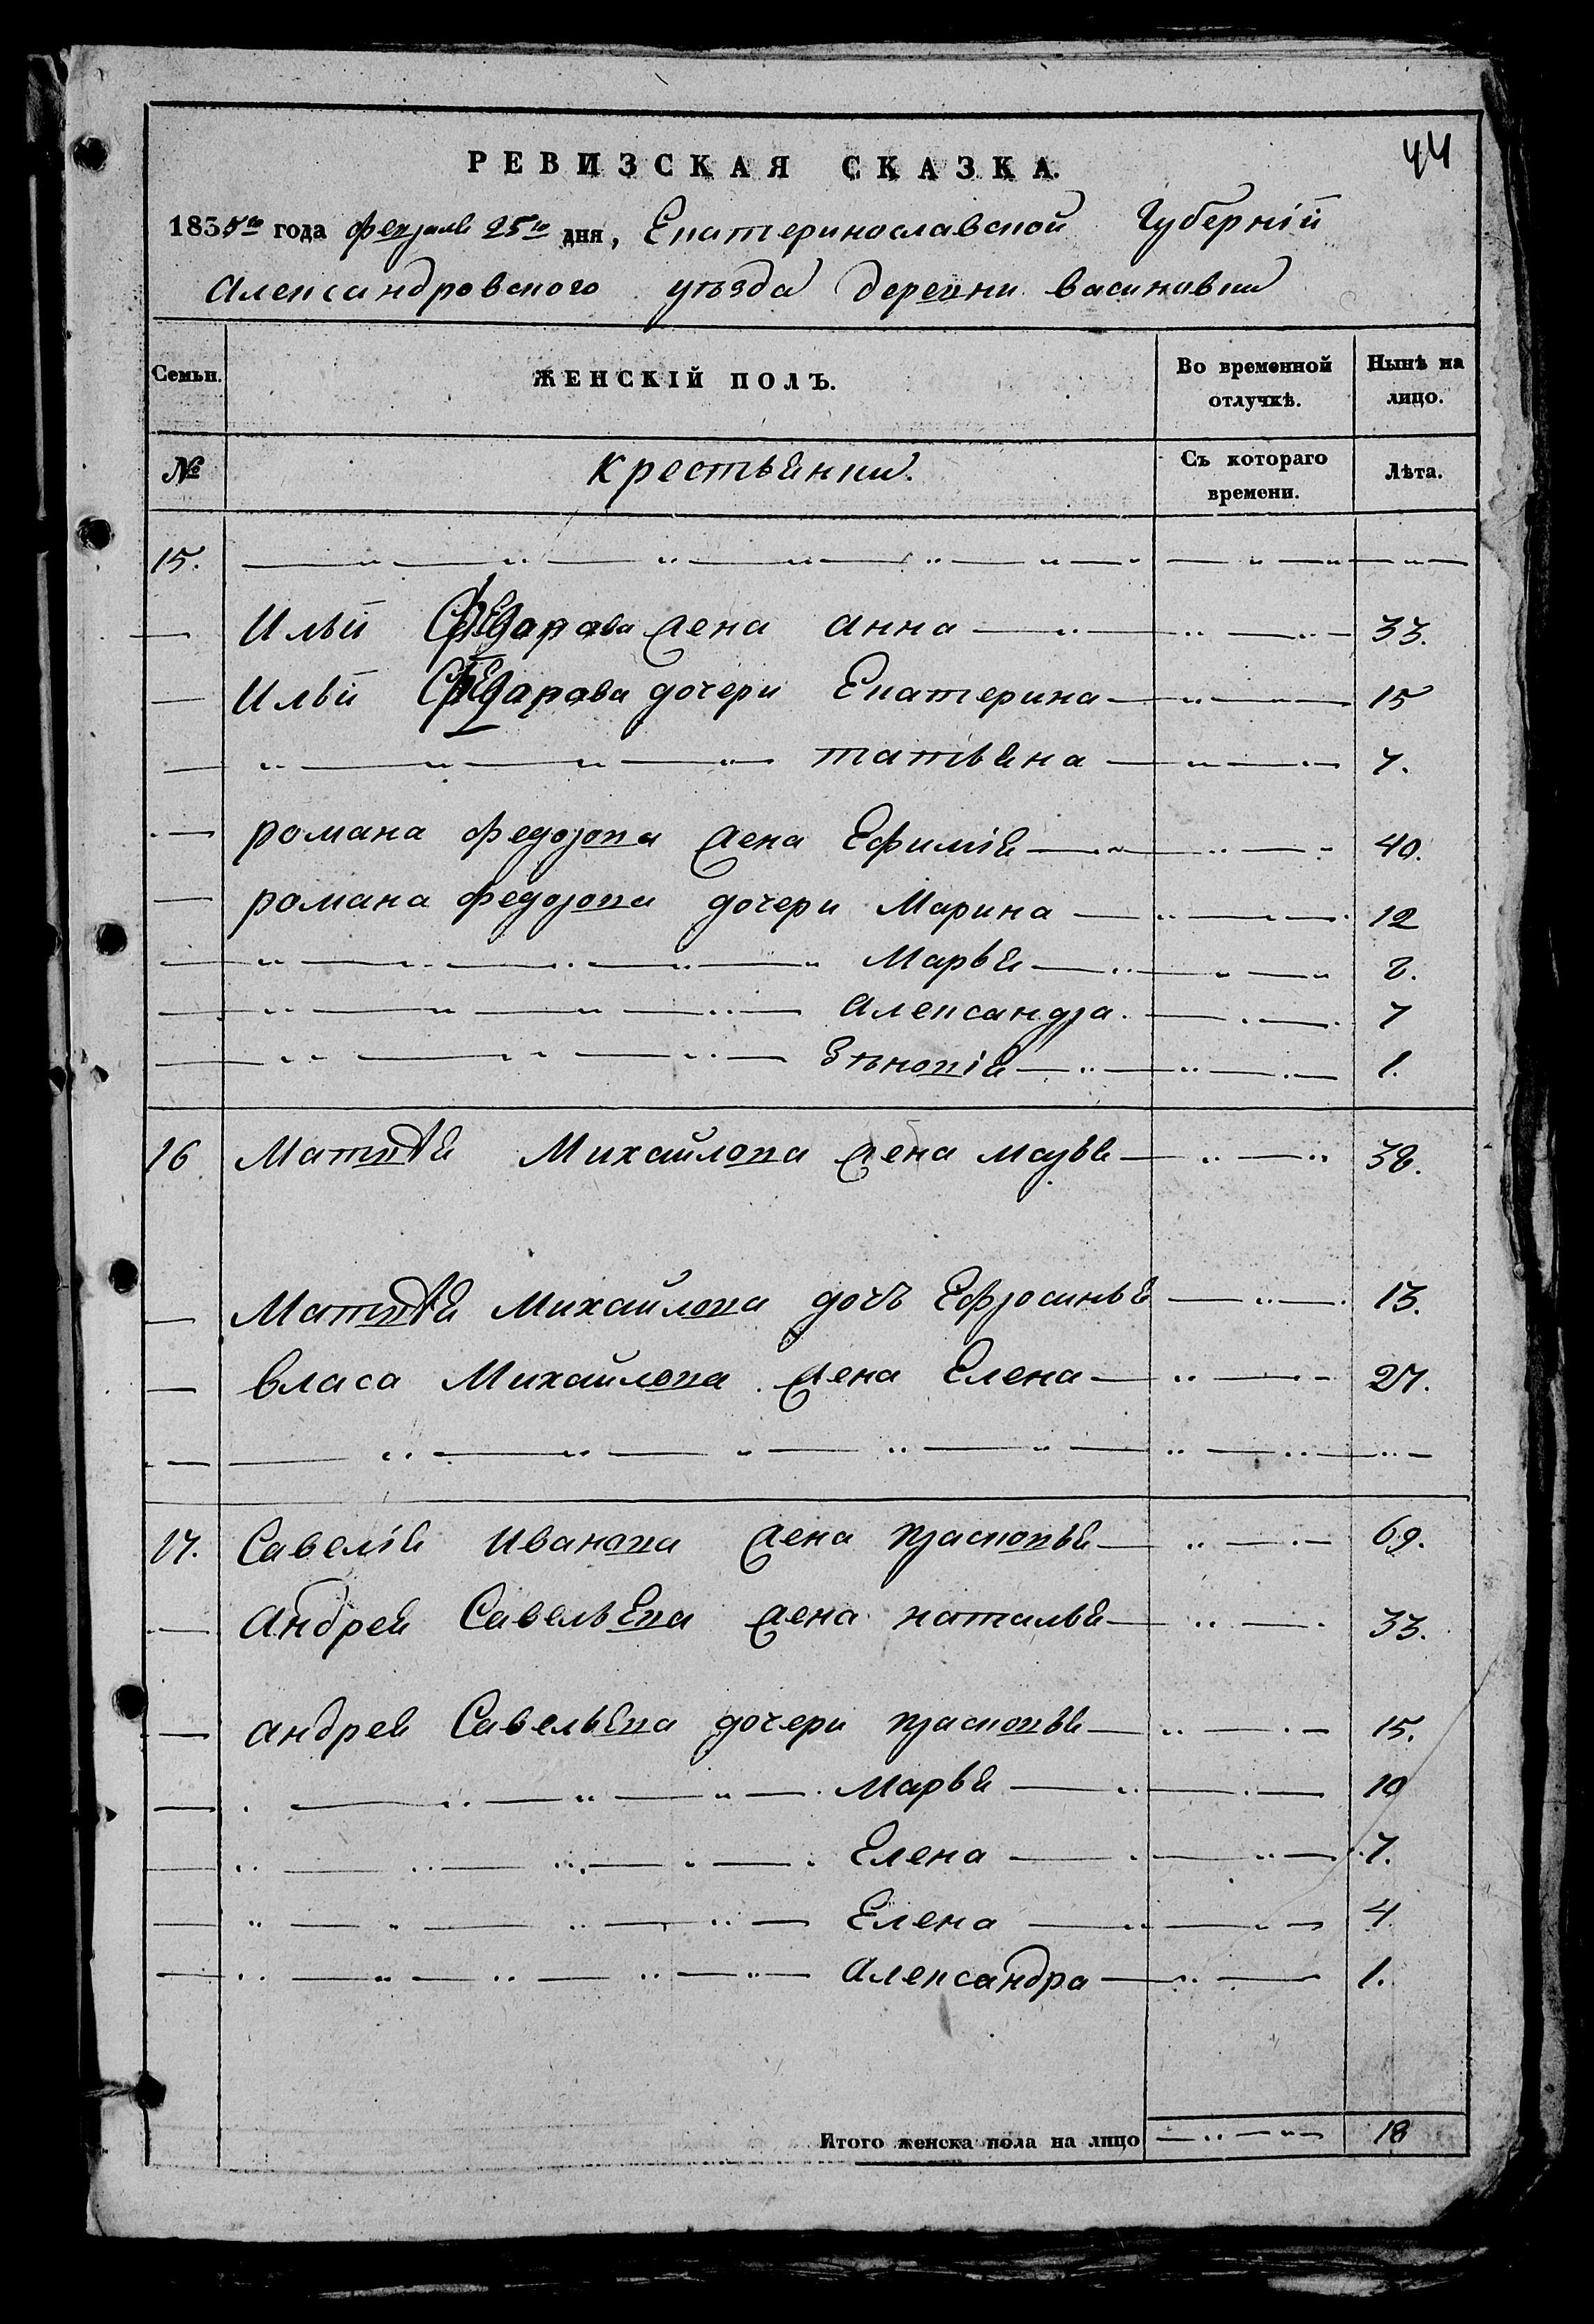 44
РЕВИЗСКАЯ СКАЗКА.
1835го года февраля 25го дня, Екатеринославской Губерніи
Александровского уѣзда деревни васиковки
Семьи. ЖЕНСКІЙ ПОЛЪ. Во временной отлучкѣ. Нынѣ на лицо.
№ крестьянки. Съ котораго времени. Лѣта.
15.
Ильи Федорова жена анна 33.
Ильи Федорова дочери Екатерина 15
татьяна 7.
романа федорова жена Ефимія 40.
романа федорова дочери Марина 12
Марья 8.
александра. 7
Зѣновія 1.
16 Матвѣя Михайлова жена марья 38.
Матвѣя Михайлова дочь Ефросинья 13.
власа Михайлова жена Елена 27.
17. Савелія иванова жена прасковья 69.
андрея Савельева жена наталья 33.
андрея Савельева дочери прасковья 15.
марья 10
Елена 7.
Елена 4
александра 1.
Итого женска пола на лицо 18